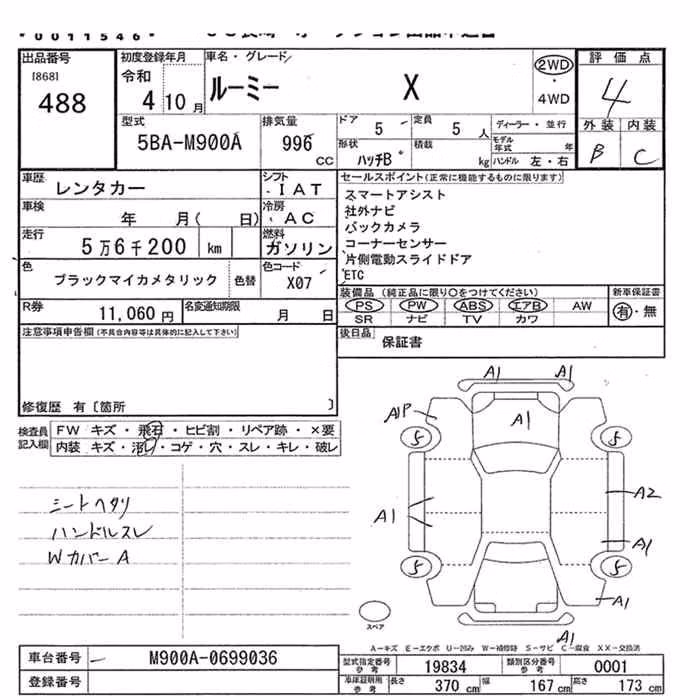 *0011546*
出品番号
[868]
488
初度登録年月
令和
4 10 月
車名・グレード
ルーミー X
2WD
・
4WD
評価点
4
外装 内装
B C
型式
5BA-M900A
排気量
996 CC
ドア 5
定員 5 人
形状 ハッチB
積載 kg
ディーラー・並行
モデル年式 年
ハンドル 左・右
車歴
レンタカー
シフト
IAT
車検
年 月( 日)
冷房
AC
走行
5万6千200 km
燃料
ガソリン
色
ブラックマイカメタリック
色替
色コード
X07
R券
11,060 円
名変通知期限
月 日
セールスポイント(正常に機能するものに限ります)
スマートアシスト
社外ナビ
バックカメラ
コーナーセンサー
片側電動スライドドア
ETC
装備品 (純正品に限り○をつけてください)
PS PW ABS エアB AW
SR ナビ TV カワ
新車保証書
有・無
後日品
保証書
注意事項申告欄(不具合内容等は具体的に記入して下さい)
修復歴 有〔箇所 〕
検査員記入欄
FW キズ・飛石・ヒビ割・リペア跡・×要
内装 キズ・汚れ・コゲ・穴・スレ・キレ・破レ
シートヘタリ
ハンドルスレ
Wカバー A
A1 A1
A1P
A1
5 5
A1
A2
A1
5 5
A1
A1
スペア
A-キズ E-エクボ U-凹み W-補修跡 S-サビ C-腐食 XX-交換済
車台番号
M900A-0699036
登録番号
型式指定番号 参考
19834
類別区分番号 参考
0001
車庫証明用 参考
長さ 370 cm
幅 167 cm
高さ 173 cm